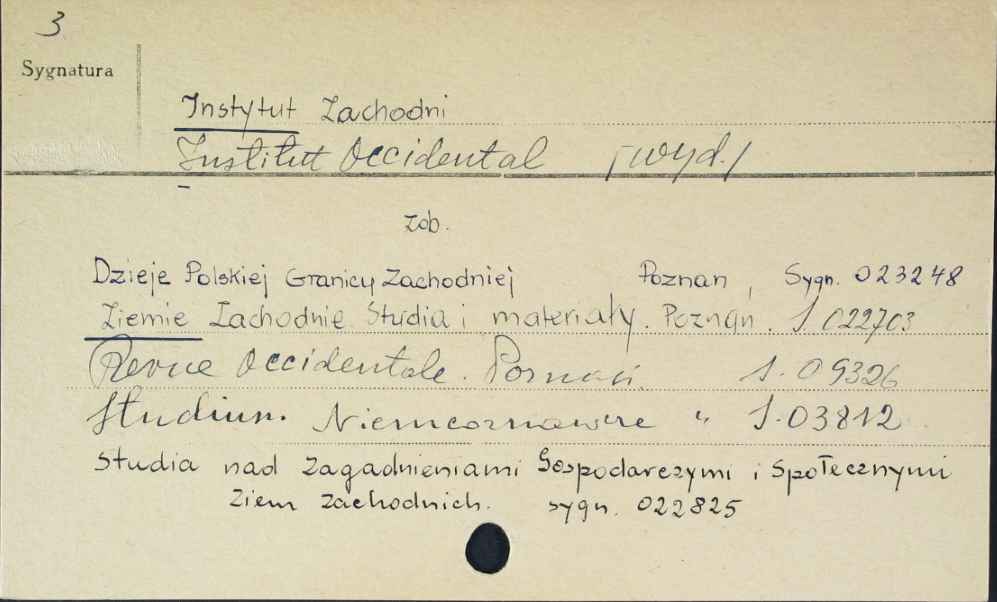 3
Sygnatura
Instytut Zachodni
Institut Occidental /wyd./
zob.
Dzieje Polskiej Granicy Zachodniej Poznan, Sygn. 023248
Ziemie Zachodnie. Studia i materiały. Poznań. S 022703
Revue Occidentale. Poznań. S. 09326
Studium Niemcoznawcze " S.03812
Studia nad Zagadnieniami Gospodarczymi i Społecznymi
Ziem Zachodnich. sygn. 022825